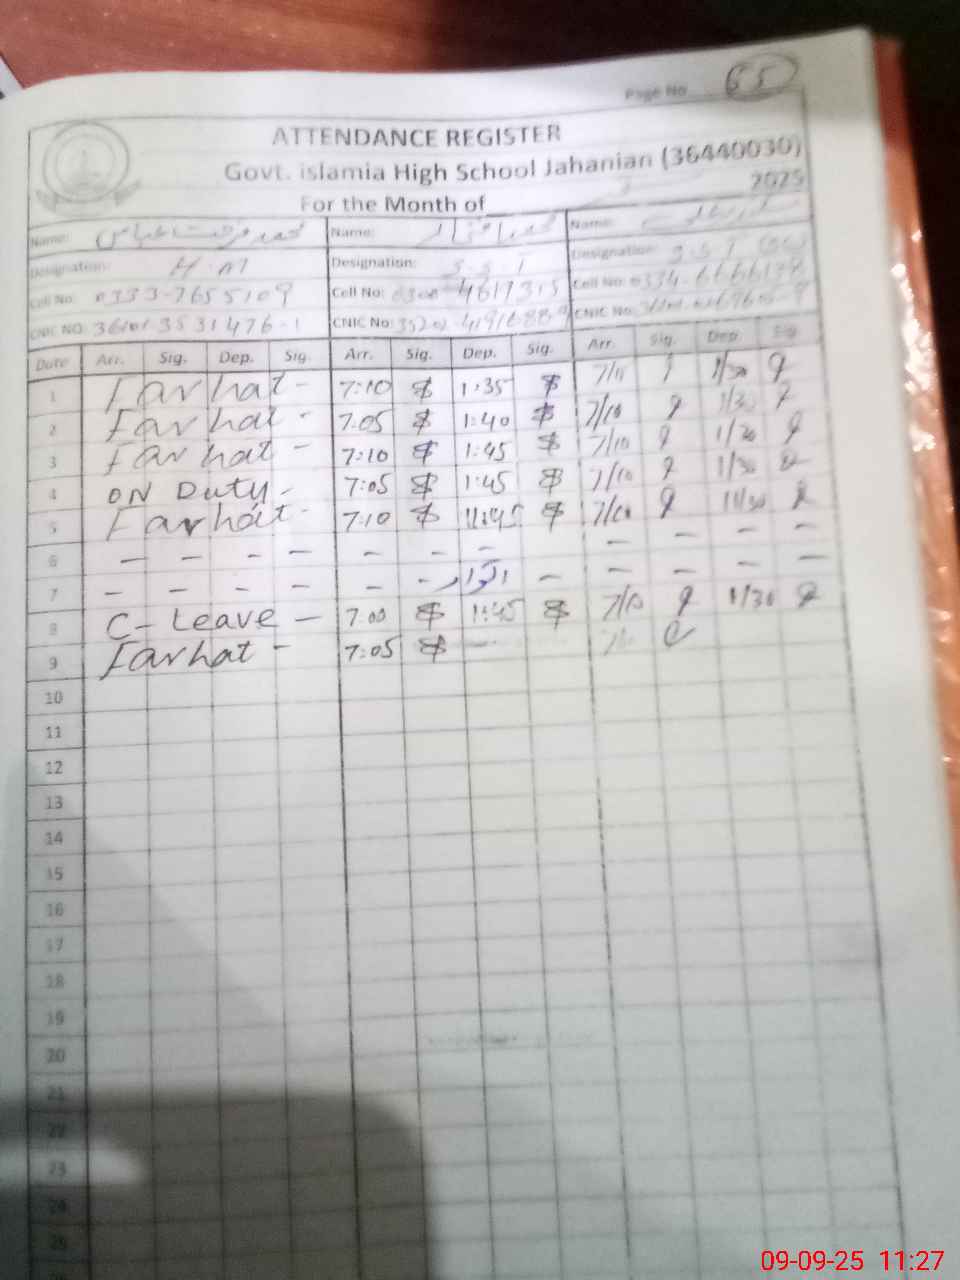 Page No 65
ATTENDANCE REGISTER
Govt. islamia High School Jahanian (36440030)
For the Month of 2025
Name: محمد فرحت عباس Name: Name:
Designation: H.M Designation: S.S.T Designation: S.S.T
Cell No: 0333-7655109 Cell No: 0300-4617315 Cell No:
CNIC NO: 36101 3531476-1 CNIC No: CNIC No:
Date Arr. Sig. Dep. Sig. Arr. Sig. Dep. Sig. Arr. Sig. Dep. Sig
1 Farhat - 7:10 1:35 7/10 1/30
2 Farhat - 7:05 1:40 7/10 1/30
3 Farhat - 7:10 1:45 7/10 1/30
4 ON Duty - 7:05 1:45 7/10 1/30
5 Farhat - 7:10 7/10
6 - - - - - - - - - - -
7 - - - - - - اتوار - - - - -
8 C-Leave - 7:00 1:45 7/10 1/30
9 Farhat - 7:05
10
11
12
13
14
15
16
17
18
19
20
21
22
23
24
25
09-09-25 11:27